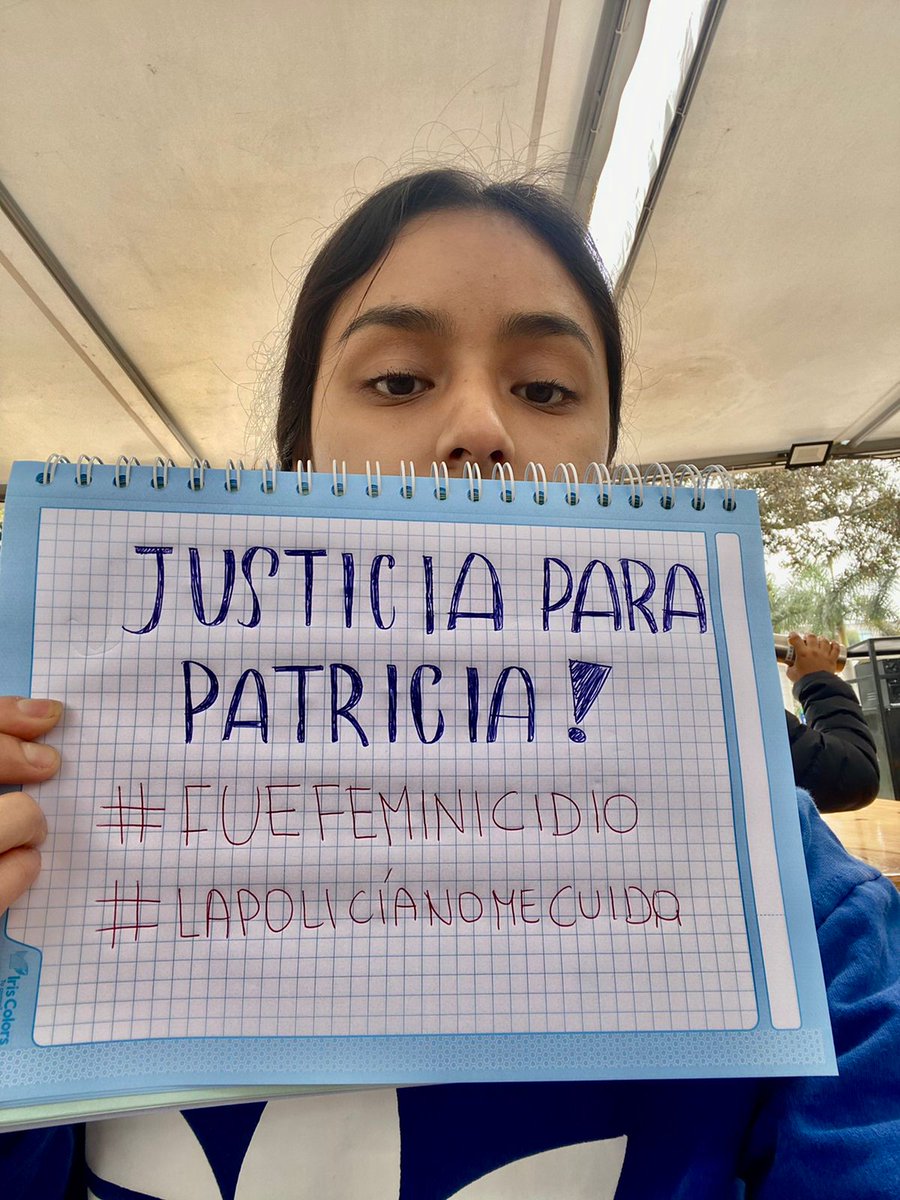 JUSTICIA PARA
PATRICIA!
#FUEFEMINICIDIO
#LAPOLICÍANOMECUIDA
Iris Colors